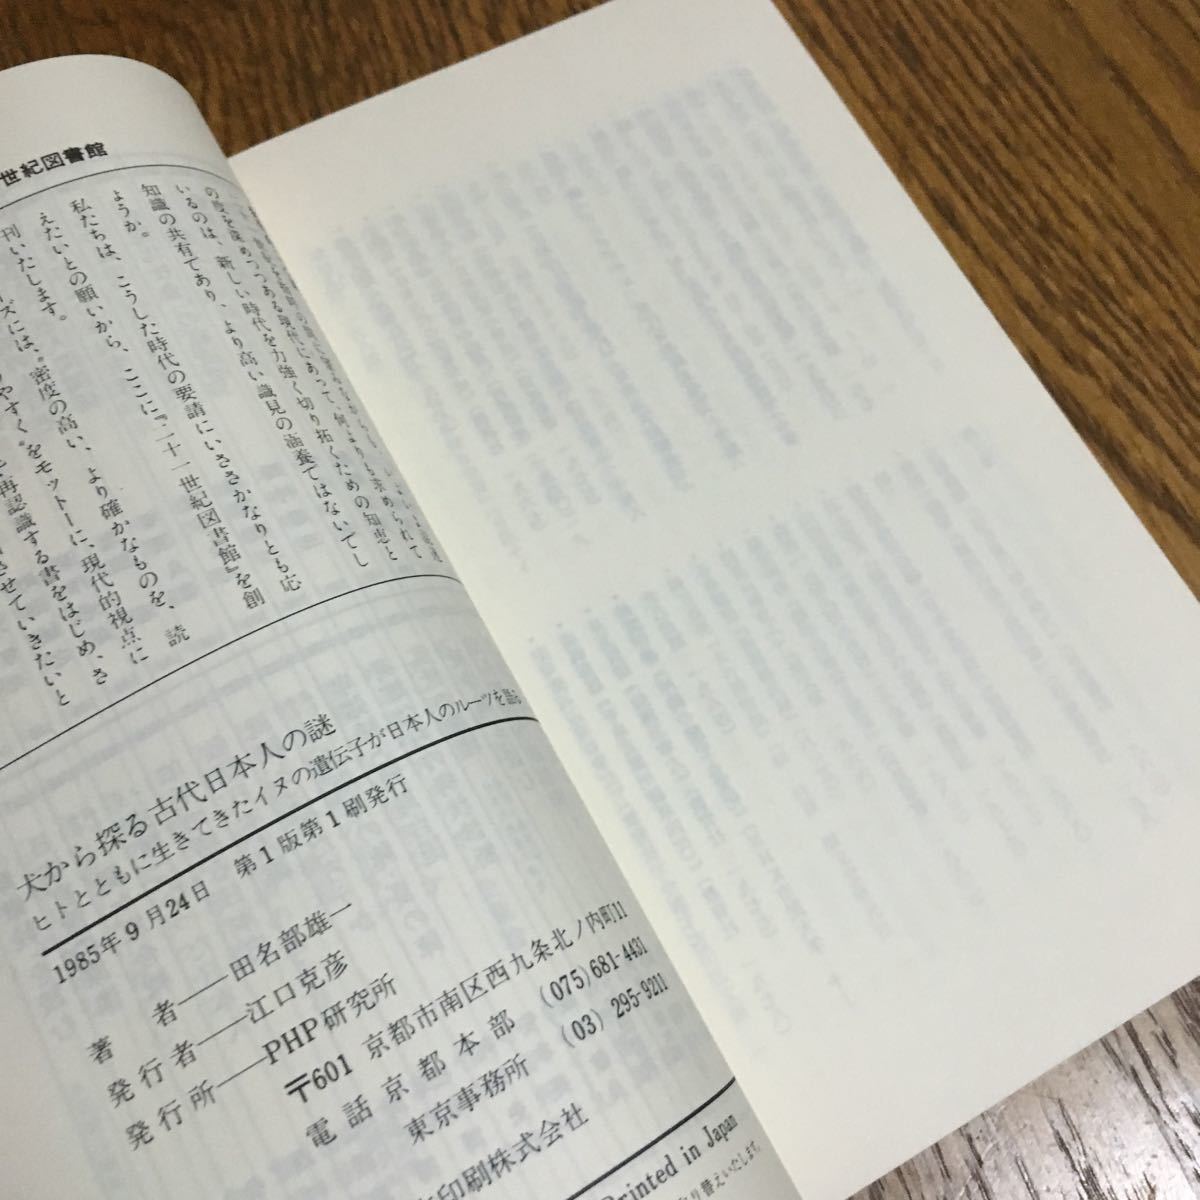 世紀図書館
の度を深めつつある現代にあって、何よりも求められて
いるのは、新しい時代を力強く切り拓くための知恵と
知識の共有であり、より高い識見の涵養ではないでし
ょうか。
私たちは、こうした時代の要請にいささかなりとも応
えたいとの願いから、ここに『二十一世紀図書館』を創
刊いたします。
ズには、“密度の高い、より確かなものを、読
やすく”をモットーに、現代的視点に
再認識する書をはじめ、さ
させていきたいと
犬から探る古代日本人の謎
ヒトとともに生きてきたイヌの遺伝子が日本人のルーツを語る
1985年9月24日 第1版第1刷発行
著者――田名部雄一
発行者――江口克彦
発行所――PHP研究所
〒601 京都市南区西九条北ノ内町11
電話 京都本部 (075) 681-4431
東京事務所 (03) 295-9211
印刷株式会社
Printed in Japan
り替えいたします。